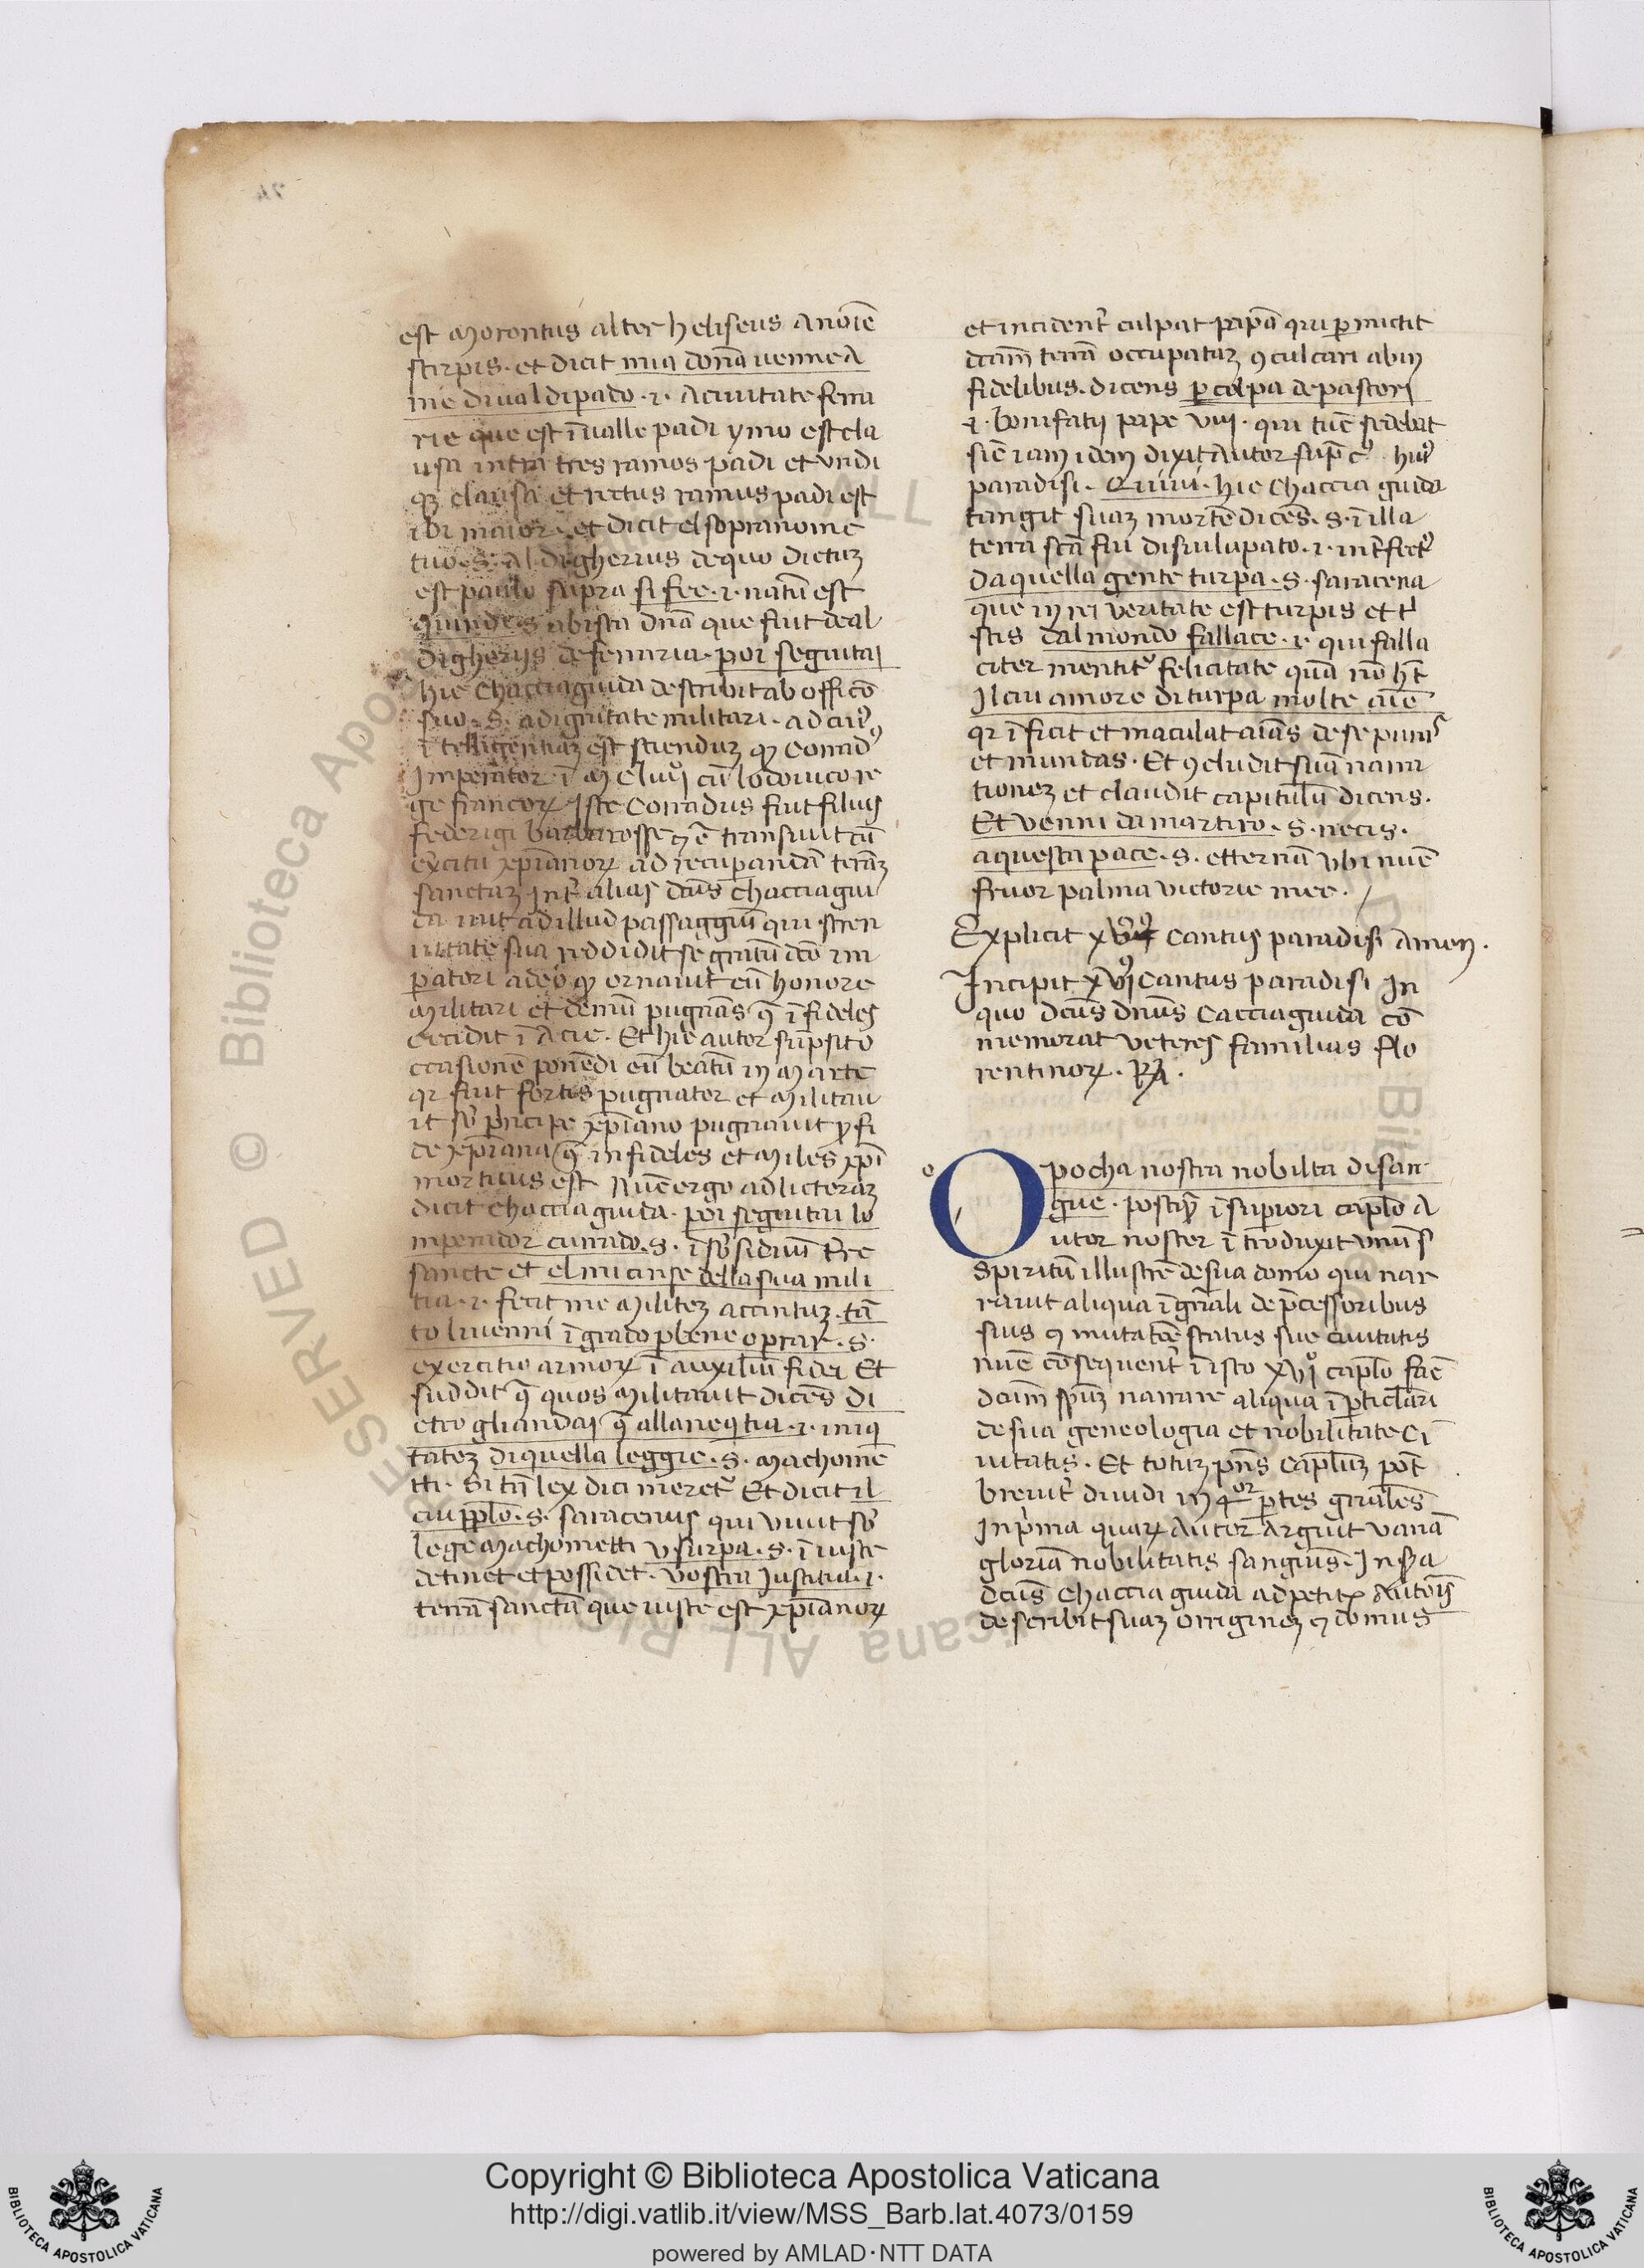 est morontus alter heliseus a noīe
stirpis. et dicit mia donā uenne a
me di ual di pado .i. a ciuitate ferra
rie que est ī ualle padi ymo est cla
usa intra tres ramos padi et undi
qȝ clausa et rectus ramus padi est
ibi maior. et dicit el sopranome
tuo .s. aldigherius de quo dictuȝ
est paulo supra si fec .i. natū est
quinde .s. ab ista dnā que fuit de al
digheriis de ferraria. poi seguitai
hic Chacciaguida describit ab officō
suo .s. a dignitate militari. ad cuiꝰ
ītelligentiaȝ est sciendum ꝙ Conradꝰ
Imperator ī Mclvij cū lodouico re
ge francoꝝ Iste Conradus fuit filius
federigi barbarosse ⁊ ē transiuit cū
excitu xp̄ianoꝝ ad recuperandā terāȝ
sanctaȝ Int̄ alias dcūs Chacciagui
da iuit ad illud passaggiū qui stren
uitate sua reddidit se gratū dco im
patori adeo ꝙ ornauit eū honore
militari et demū pugnās ꝯ īfideles
cecidit ī acie. Et hic autor sūpsit o
ccasionē ponēdi eū beatū in marte
qr fuit fortis pugnator et militau
it so principe xp̄iano pugnauit ꝓ fi
de xp̄iana ꝯ infideles et miles xp̄i
mortuus est Nūc ergo ad licteraȝ
dicit Chacciaguida. poi seguitai lo
imperador currado .s. ī sosidiū t̄re
sancte et el mi cinse della sua mili
tia .i. fecit me militeȝ accintuȝ. tā
to li uenni ī grado ꝑ bene oprar .s.
exercitio armoꝝ ī auxiliū fidei Et
suddit ꝯ quos militauit dicēs di
etro gli andai ꝯ alla neqitia .i. iniq
tateȝ di quella leggie .s. machomē
tti. Si tn̄ lex dici meret̄ Et dicit il
cui pplo .s. saracenus qui uiuit so
lege machometti usurpa .s. ī iuste
detinet et possidet. vostra Iustitia .i.
terrā sanctā que iuste est xp̄ianoꝝ
et incident̄ culpat papā qui ꝑmictit
dcam̄ terrā occupataȝ ꝯculcari ab in
fidelibus. dicens ꝑ colpa de pastori
.i. bonifatij pape viij. qui tūc sedebat
sic̄ iam idem dixit Autor sup̄ cº huiꝰ
paradisi. Quiui. hic Chacciaguida
tangit suaȝ mortē dicēs .s. ī illa
terra scā fui disuilupato .i. int̄fectꝰ
da quella gente turpa .s. saracena
que in rei veritate est turpis et t
stis dal mondo fallace .i. qui falla
citer mentitꝰ felicitatē quā nō h̄t
Il cui amore diturpa molte aīe
qr īficit et maculat aīas de se puras
et mundas. Et ꝯcludit suā narra
tioneȝ et claudit capitulū dicens.
Et venni da martiro .s. necis.
a questa pace .s. etternā ubi nūc
fruor palma victorie mee. /
Explicit xvꝰ Cantus paradisi Amen.
Incipit xvjꝰ Cantus paradisi In
quo dcūs dnūs Cacciaguida cō
memorat veteres familias flo
rentinoꝝ. Rᴬ.
o
O pocha nostra nobilta di san
gue. postqꝫ ī superiori capło A
utor noster ītroduxit unū s
Spiritū illustrē de sua domo qui nar
rauit aliqua ī gn̄rali de p̄cessoribus
suis ⁊ mutatōe status sue ciuitatis
nūc cōsequent̄ ī isto xvjº capło fac̄
dcūm sp̄uȝ narrare aliqua ī pticłari
de sua geneologia et nobilitate ci
uitatis. Et totuȝ pn̄s capłuȝ pōt
breuit̄ diuidi in 4or ptes gn̄ales
In prima quaꝝ Autor Arguit vanā
gloriā nobilitatis sanguīs. In sᵃ
dcūs Chacciaguida ad petitꝫ Autoris
describit suaȝ origineȝ ⁊ domus
Copyright © Biblioteca Apostolica Vaticana
http://digi.vatlib.it/view/MSS_Barb.lat.4073/0159
powered by AMLAD·NTT DATA